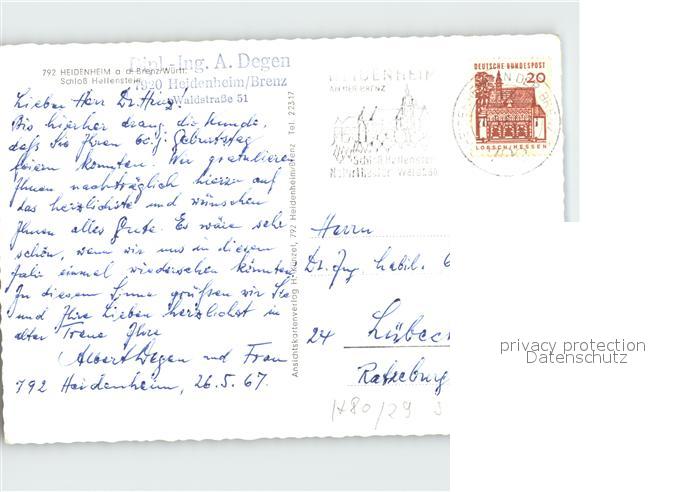 792 HEIDENHEIM a. d. Brenz/Württ.
Schloß Hellenstein
Dipl.-Ing. A. Degen
7920 Heidenheim/Brenz
Waldstraße 51
Lieber Herr Dr. Hing!
Bis hierher drang die Kunde,
daß Sie Ihren 60.j. Geburtstag
feiern konnten. Wir gratulieren
Ihnen nachträglich hierzu auf
das herzlichste und wünschen
Ihnen alles Gute. Es wäre sehr
schön, wenn wir uns in diesem
Jahr einmal wiedersehen könnten.
In diesem Sinne grüßen wir Sie
und Ihre Lieben herzlichst in
alter Treue Ihre
Albert Degen und Frau
792 Heidenheim, 26.5.67.
Ansichtskartenverlag H. 792 Heidenheim/Brenz Tel. 22317
HEIDENHEIM
AN DER BRENZ
Schloß Hellenstein
Naturtheater
DEUTSCHE BUNDESPOST
20
LORSCH/HESSEN
Herrn
Dr. Ing. habil.
24 Lübeck
Ratzeburg
H80/29
privacy protection
Datenschutz